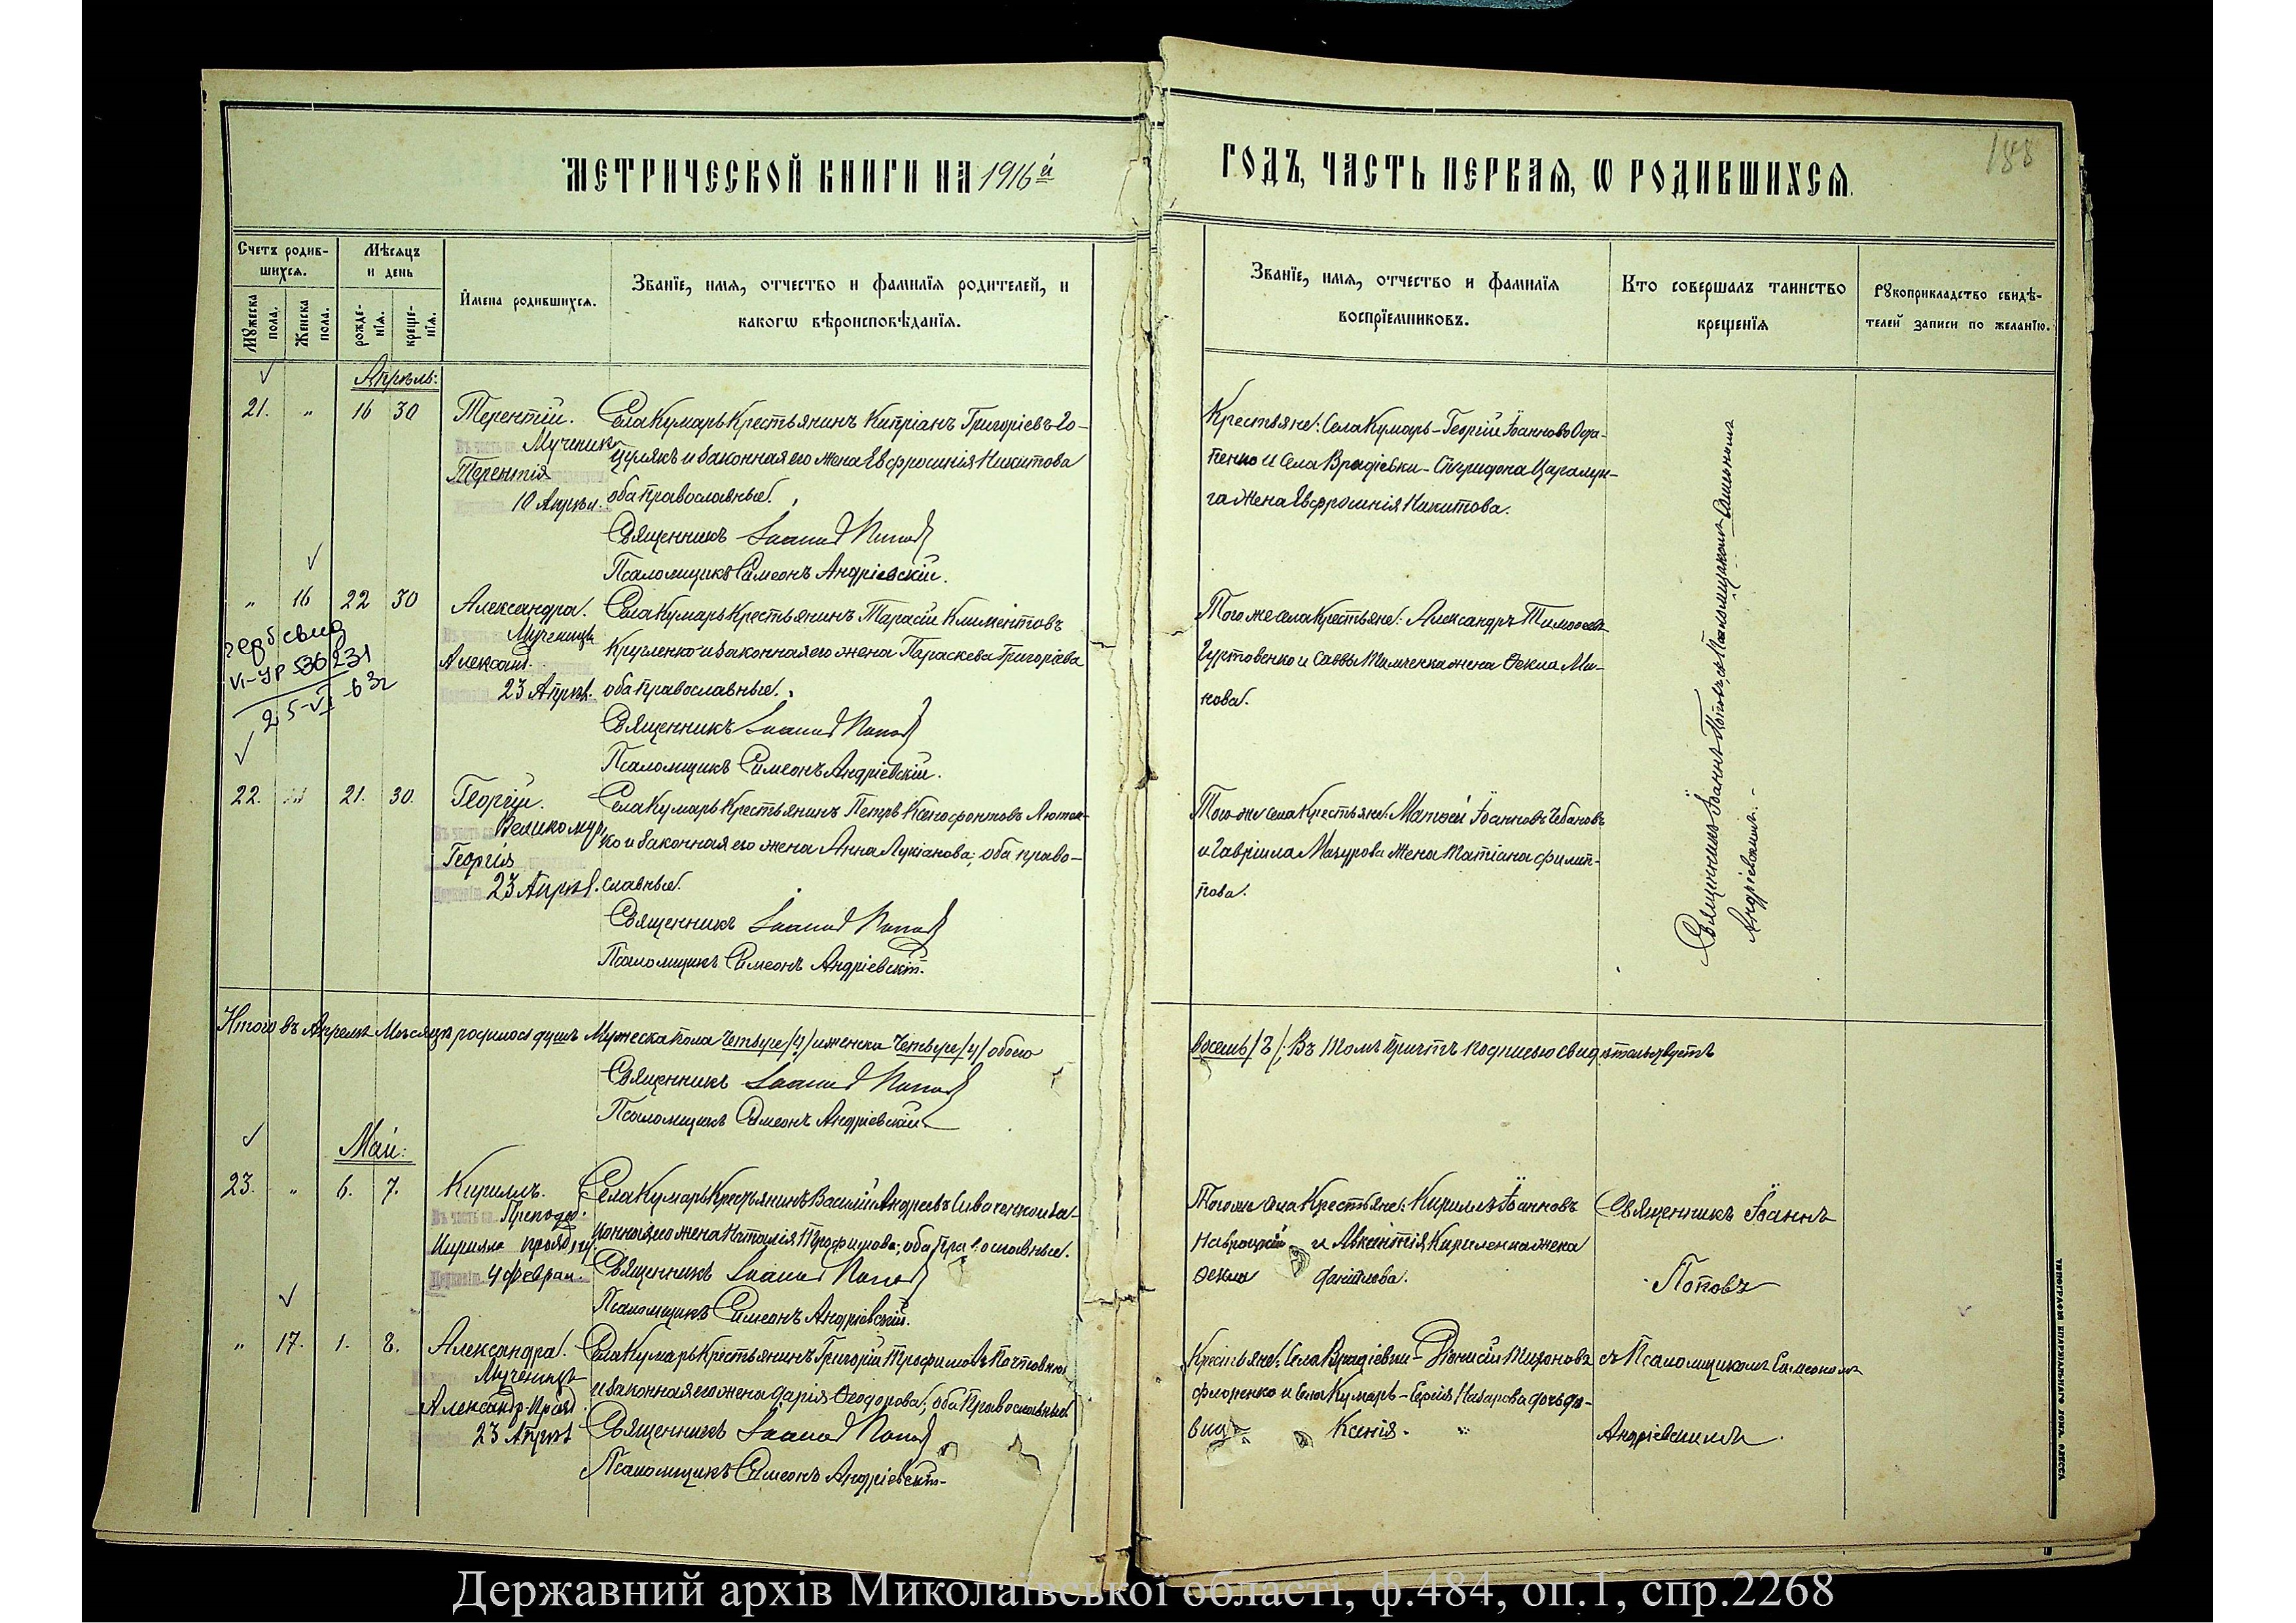 МЕТРИЧЕСКОЙ КНИГИ НА 1916й
ГОДЪ, ЧАСТЬ ПЕРВАѦ, Ѡ РОДИВШИХСѦ.
188
Счетъ родив-
шихсѧ.
Мѣсѧцъ
и день
Мꙋжеска пола.
Женска пола.
рожде-
нїѧ.
креще-
нїѧ.
Имена родившихсѧ.
Званїе, имѧ, отчество и фамилїѧ родителей, и
какогѡ вѣроисповѣданїѧ.
Званїе, имѧ, отчество и фамилїѧ
воспрїемниковъ.
Кто совершалъ таинство
крещенїѧ
Рꙋкоприкладство свидѣ-
телей записи по желанїю.
Апрѣль:
21. " 16 30
Терентій.
Мученик
Терентія
10 Апрѣл.
Села Кумарь Крестьянинъ Кипріанъ Григоріевъ Го-
цулякъ и законная его жена Евфросинія Никитова
оба православные.
Священникъ Іоаннъ Попов
Псаломщикъ Симеонъ Андріевскій.
Крестьяне: Села Кумарь – Георгій Іоанновъ
пенко и Села Врадіевки – Спиридона
га жена Евфросинія Никитова.
" 16 22 30
Александра.
Мученицы
Александ.
23 Апрѣл.
Села Кумарь Крестьянинъ Тарасій Климентовъ
Кругленко и законная его жена Параскева Григоріева
оба православные.
Священникъ Іоаннъ Попов
Псаломщикъ Симеонъ Андріевскій.
Того же села Крестьяне: Александръ Тимофеевъ
Гуртовенко и Саввы жена Фекла Ми-
нова.
VI-УР 536231
25-VI-63г
22. " 21. 30.
Георгій.
Великомуч.
Георгія
23 Апрѣл.
Села Кумарь Крестьянинъ Петръ Ксенофонтовъ Лютен-
ко и законная его жена Анна Лукіанова, оба право-
славные.
Священникъ Іоаннъ Попов
Псаломщикъ Симеонъ Андріевскій.
Того же села Крестьяне: Матфей Іоанновъ Чебановъ
и Гавріила Мазурова жена Татіана Филип-
пова.
Священникъ Іоаннъ Поповъ, съ Псаломщикомъ Симеономъ
Андріевскимъ.
Итого въ Апрелѣ Мѣсяцѣ родилось душъ Мужеска пола четыре /4/ и женска четыре /4/ обоего
восемь /8/. Въ томъ причтъ подписью свидѣтельствуетъ
Священникъ Іоаннъ Попов
Псаломщикъ Симеонъ Андріевскій
Май:
23. " 6. 7.
Кириллъ.
Преподоб.
4 Феврал.
Села Кумарь Крестьянинъ Василій Андреевъ Сиваченко и за-
конная его жена Наталія Трофимова, оба православные.
Священникъ Іоаннъ Попов
Псаломщикъ Симеонъ Андріевскій.
Того же села Крестьяне: Кириллъ Іоанновъ
Навроцкій и Авксентія Кириленка жена
Фекла Даніилова.
Священникъ Іоаннъ
Поповъ
" 17. 1. 8.
Александра.
Мученицы
Александр.
23 Апрѣл
Села Кумарь Крестьянинъ Григорій Трофимовъ
и законная его жена Дарія Феодорова, оба Православные
Священникъ Іоаннъ Попов
Псаломщикъ Симеонъ Андріевскій.
Крестьяне: Села Врадіевки – Діонисій Тихоновъ
Флоренко и Села Кумарь – Сергія Назарова дочь дѣ-
вица Ксенія.
съ Псаломщикомъ Симеономъ
Андріевскимъ.
ТИПОГРАФІЯ ЕПАРХІАЛЬНАГО ДОМА, ОДЕССА.
Державний архів Миколаївської області, ф.484, оп.1, спр.2268